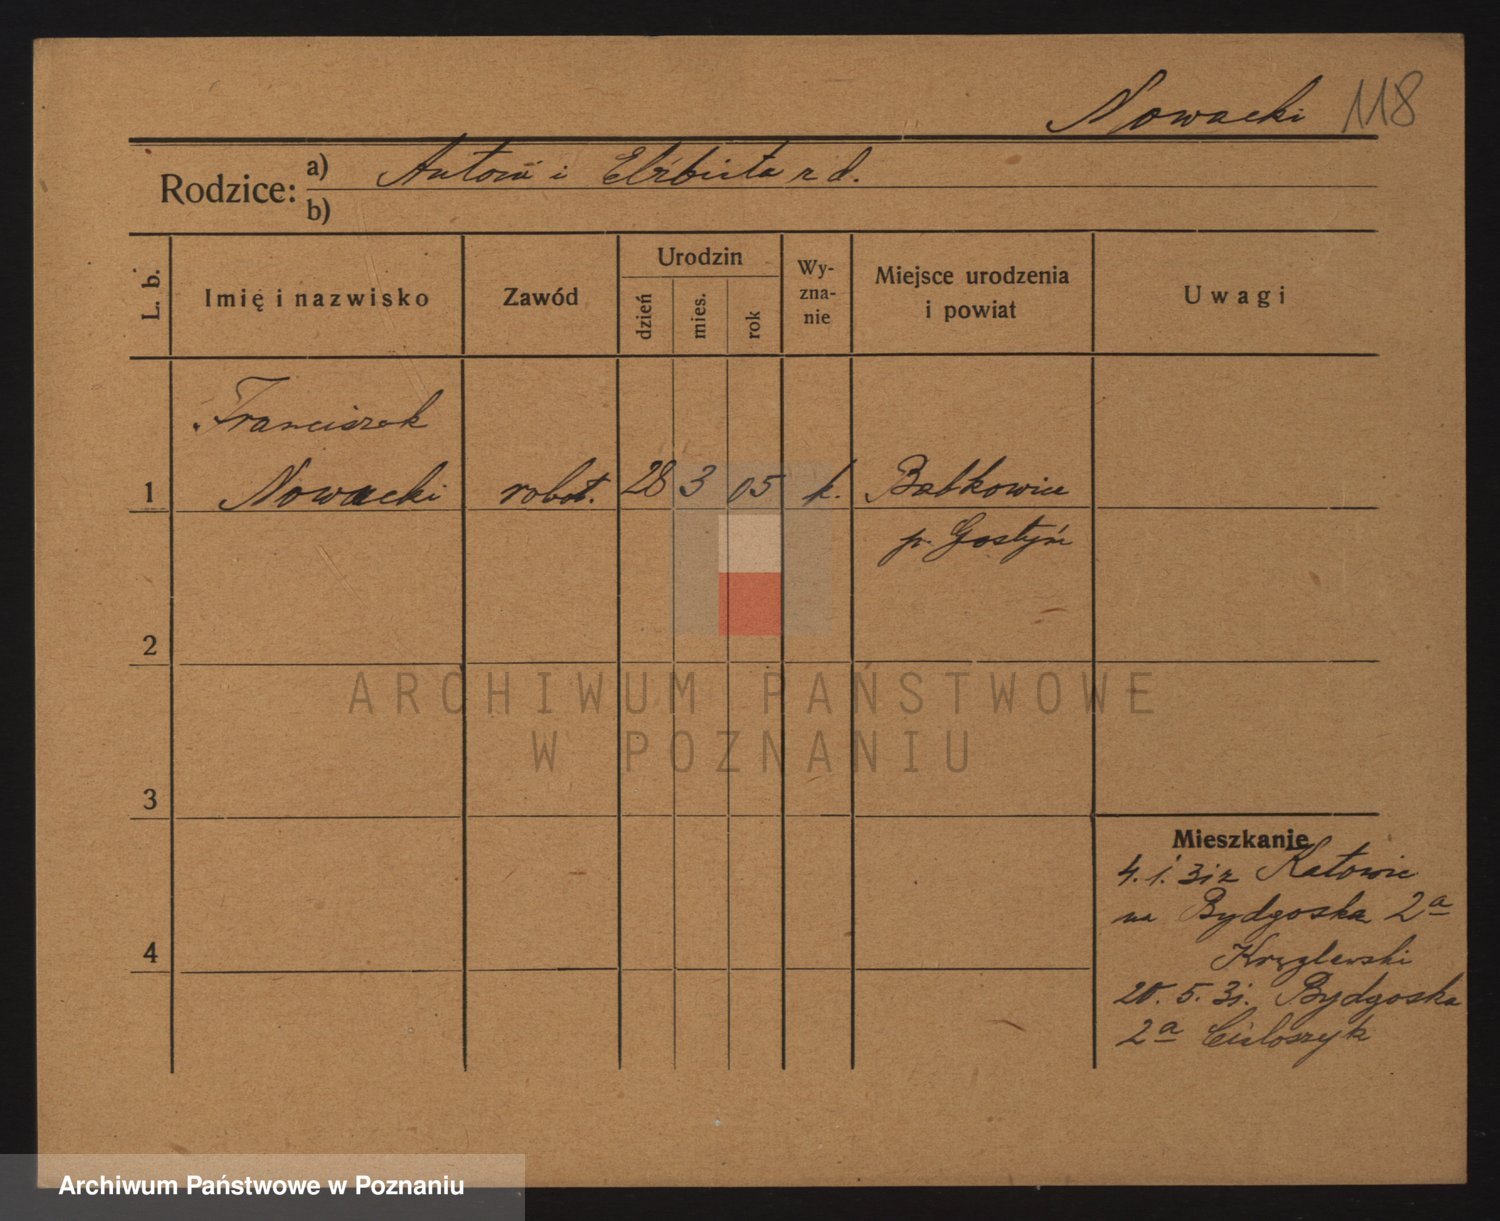 Nowacki 118
Rodzice: a) Antoni i Elżbieta r d.
b)
L. b.
Imię i nazwisko
Zawód
Urodzin
dzień
mies.
rok
Wy-
zna-
nie
Miejsce urodzenia
i powiat
Uwagi
Franciszek
1 Nowacki robot. 28 3 05 k. Babkowice
p. Gostyń
2
3
4
Mieszkanie
4. 1. 31 z Katowic
na Bydgoska 2a
20. 5. 31. Bydgoska
2a
ARCHIWUM PAŃSTWOWE
W POZNANIU
Archiwum Państwowe w Poznaniu